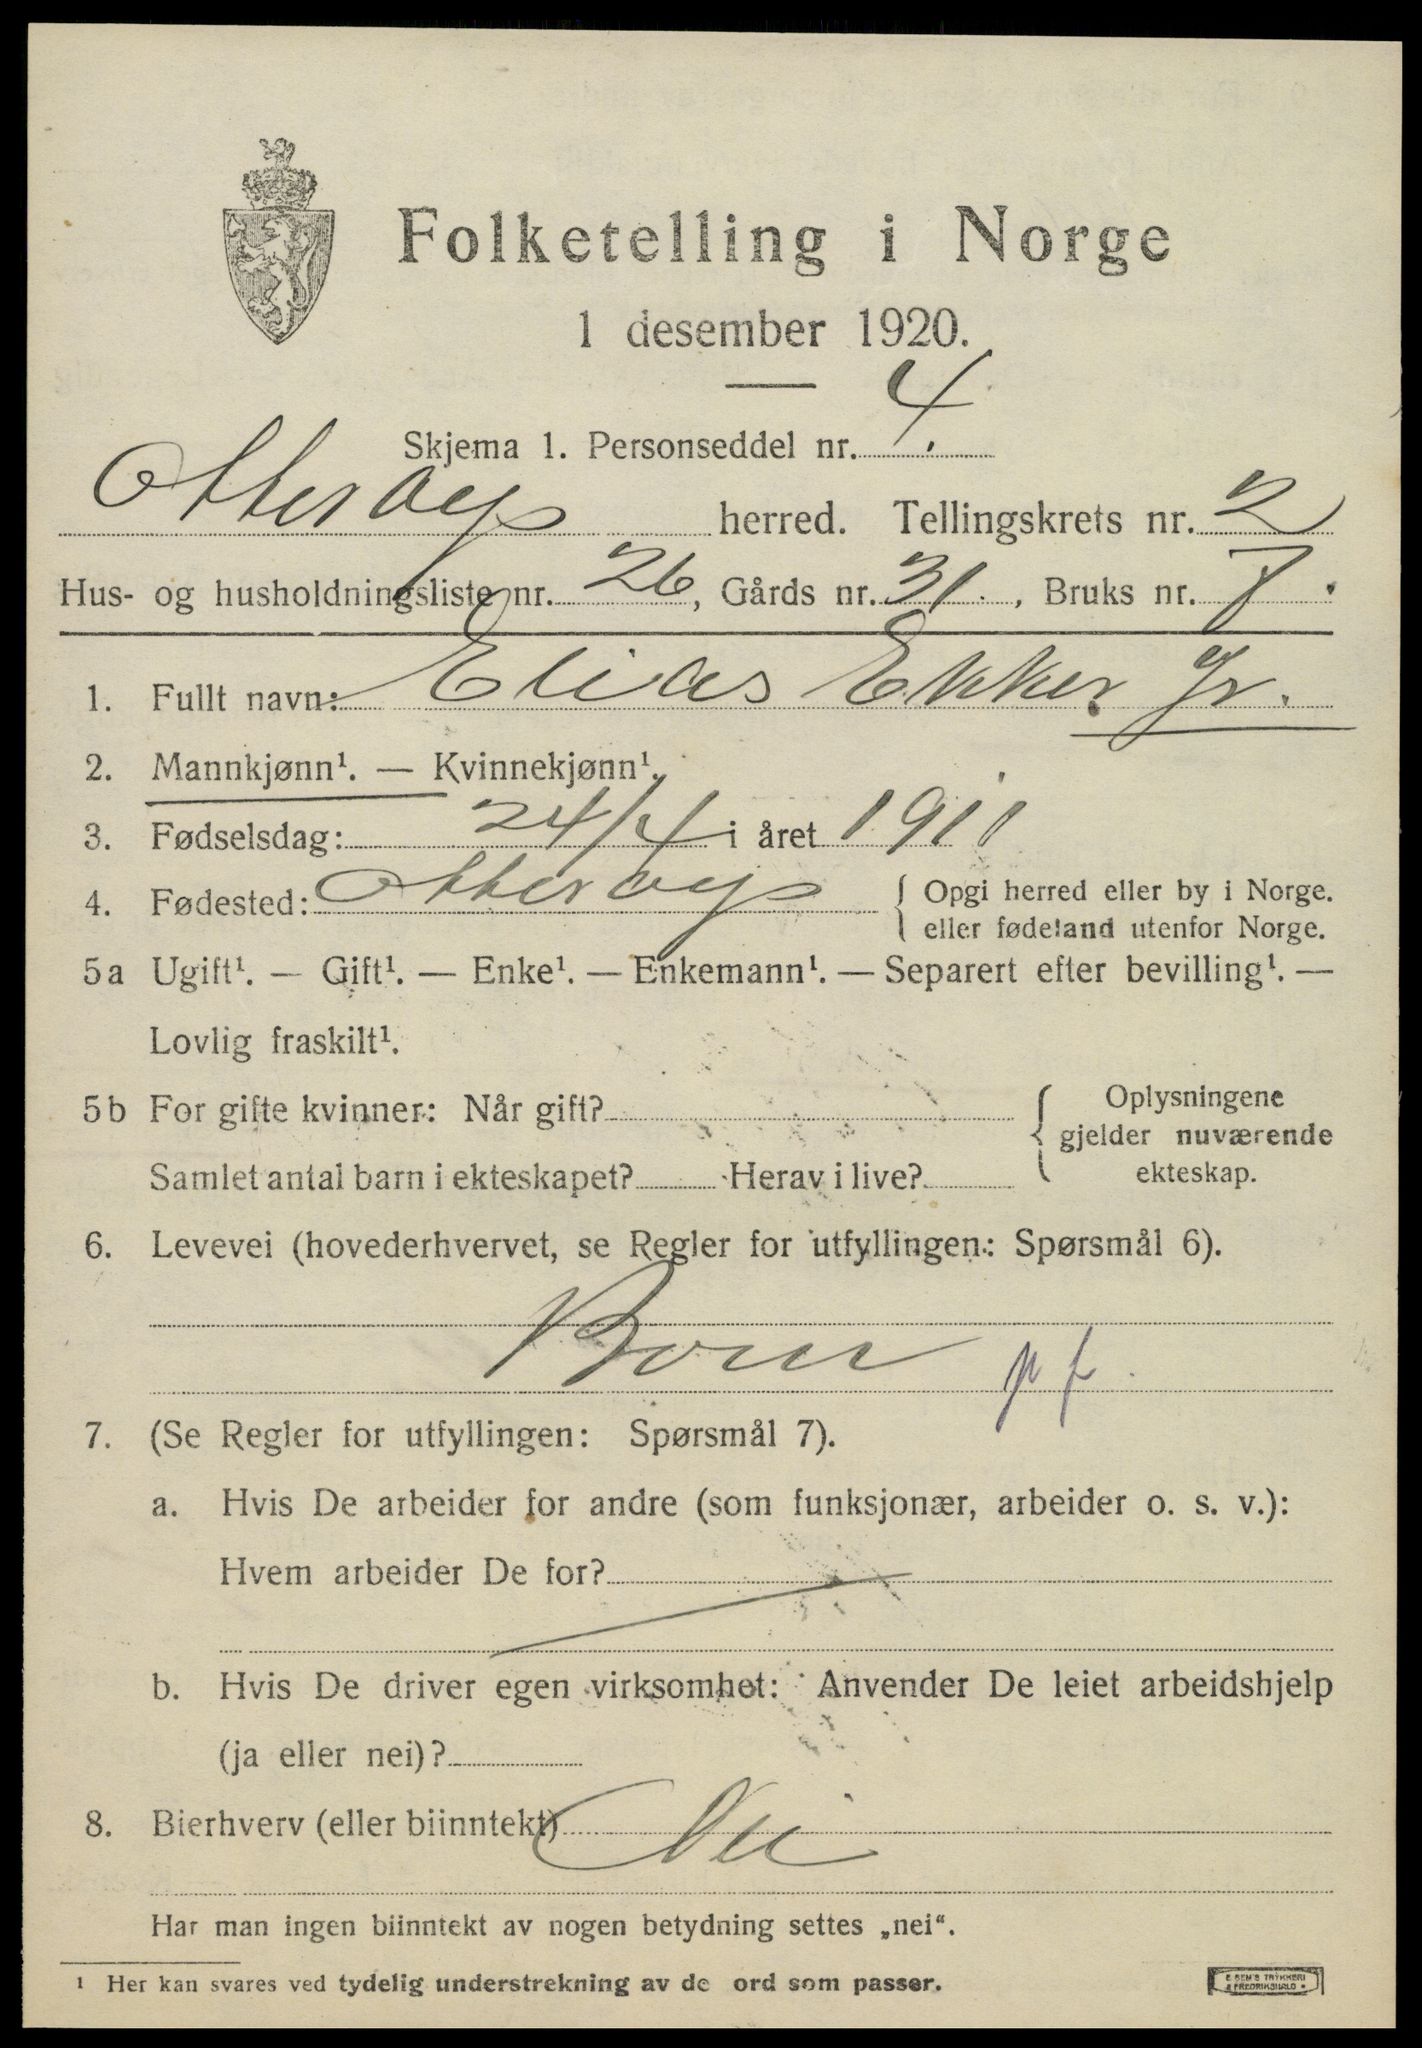 Folketelling i Norge
1 desember 1920.
Skjema 1. Personseddel nr. 4.
Otterøy herred. Tellingskrets nr. 2
Hus- og husholdningsliste nr. 26, Gårds nr. 31., Bruks nr. 7.
1. Fullt navn: Elias Ekker Jr.
2. Mannkjønn¹. — Kvinnekjønn¹.
3. Fødselsdag: 24/4 i året 1911
4. Fødested: Otterøy { Opgi herred eller by i Norge.
eller fødeland utenfor Norge.
5a Ugift¹. — Gift¹. — Enke¹. — Enkemann¹. — Separert efter bevilling¹. —
Lovlig fraskilt¹.
5b For gifte kvinner: Når gift? { Oplysningene
gjelder nuværende
Samlet antal barn i ekteskapet? Herav i live? ekteskap.
6. Levevei (hovederhvervet, se Regler for utfyllingen: Spørsmål 6).
Born pf.
7. (Se Regler for utfyllingen: Spørsmål 7).
a. Hvis De arbeider for andre (som funksjonær, arbeider o. s. v.):
Hvem arbeider De for?
b. Hvis De driver egen virksomhet: Anvender De leiet arbeidshjelp
(ja eller nei)?
8. Bierhverv (eller biinntekt) Nei
Har man ingen biinntekt av nogen betydning settes „nei“.
¹ Her kan svares ved tydelig understrekning av de ord som passer.
E. SEM'S TRYKKERI
FREDRIKSHALD